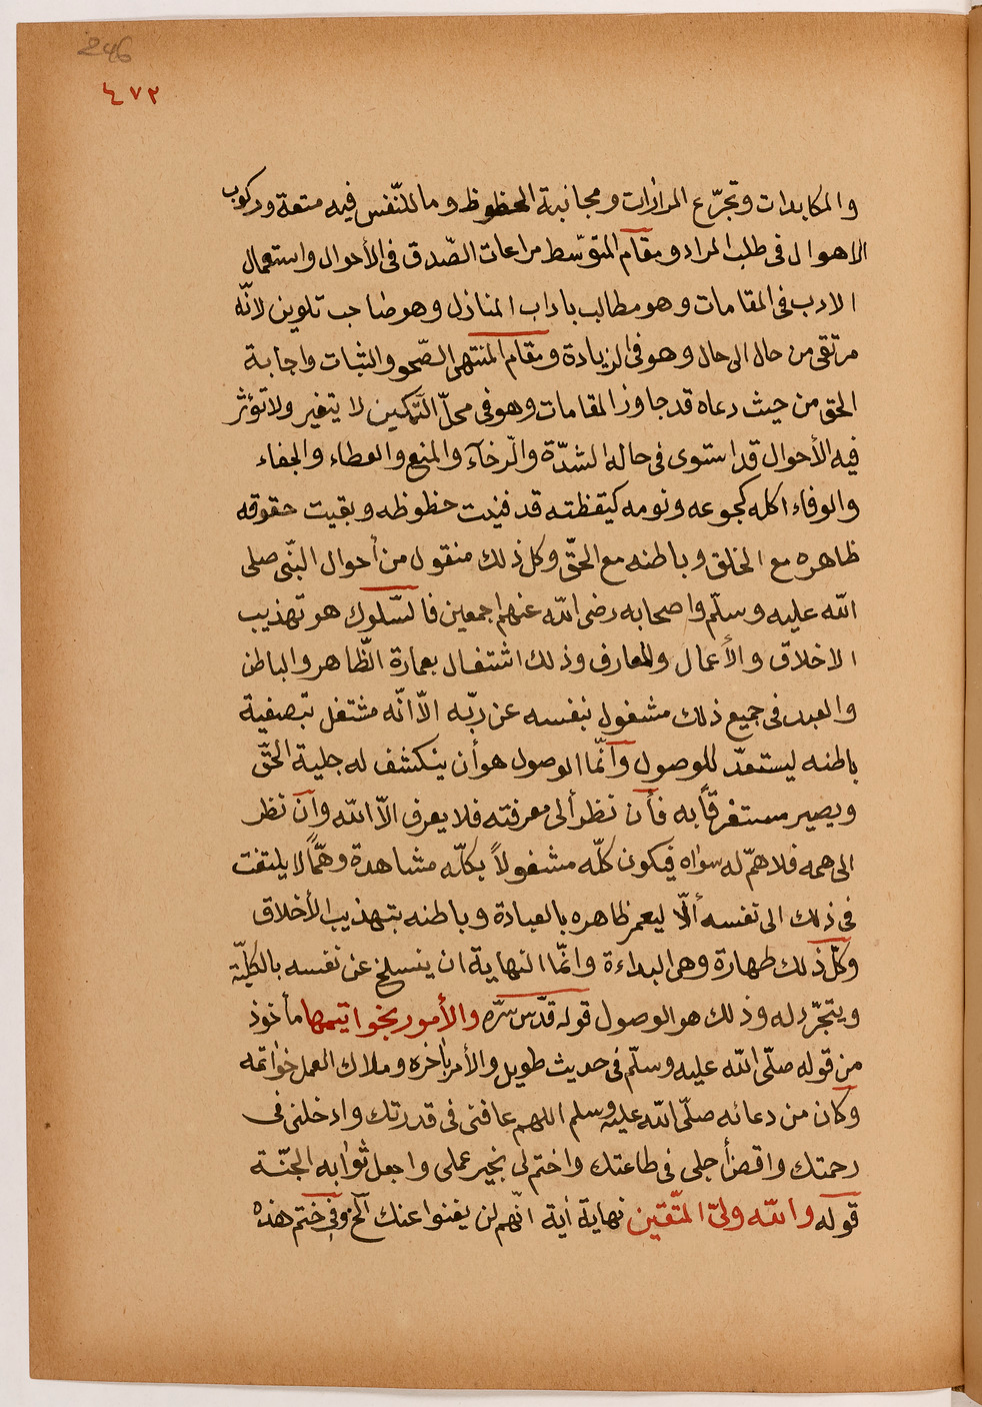 246
٤٧٢
والمكابدات وتجرّع المرارات ومجانبة الحظوظ وما للنّفس فيه متعة وركوب
الاهوال فى طلب المراد ومقام المتوّسط مراعات الصّدق فى الأحوال واستعمال
الادب فى المقامات وهو مطالب باداب المنازل وهو صاحب تلوين لانّه
مرتقى من حال الى حال وهو فى الزيادة ومقام المنتهى الصّحو والثبات واجابة
الحق من حيث دعاه قد جاوز المقامات وهو فى محلّ التّمكين لا يتغير ولا تؤثر
فيه الأحوال قد استوى فى حاله الشدّة والرّخآء والمنع والعطاء والجفاء
والوفاء اكله كجوعه ونومه كيقظته قد فنيت حظوظه وبقيت حقوقه
ظاهره مع الخلق وباطنه مع الحقّ وكل ذلك منقول من أحوال النّبى صلى
الله عليه وسلّم واصحابه رضى الله عنهم اجمعين فالسّلوك هو تهذيب
الاخلاق والأعمال والمعارف وذلك اشتغال بعمارة الظّاهر والباطن
والعبد فى جميع ذلك مشغول بنفسه عن ربّه الاّ انّه مشتغل بتصفية
باطنه ليستعدّ للوصول وانّما الوصول هو أن ينكشف له جلية الحقّ
ويصير مستغرقاً به فأن نظر ألى معرفته فلا يعرف الاّ الله وان نظر
الى همه فلا همّ له سواه فيكون كلّه مشغولاً بكلّه مشاهدة وهمّاً لا يلتفت
فى ذلك الى نفسه ألّا ليعمر ظاهره بالعبادة وباطنه بتهذيب الأخلاق
وكلّ ذلك طهارة وهى البداءة وانّما النهاية ان ينسلخ عن نفسه بالكليّة
ويتجرّد له وذلك هو الوصول قوله قدّس سرّه والأمور بخواتيمها مأخوذ
من قوله صلّى الله عليه وسلّم فى حديث طويل والأمر بآخره وملاك العمل خواتمه
وكان من دعائه صلّى الله عليه وسلم اللهم عافنى فى قدرتك وادخلنى فى
رحمتك واقض أجلى فى طاعتك واختم لى بخير عملى واجعل ثوابه الجنّة
قوله والله ولىّ المتّقين نهاية أية انّهم لن يغنوا عنك الخ وفى ختم هذه